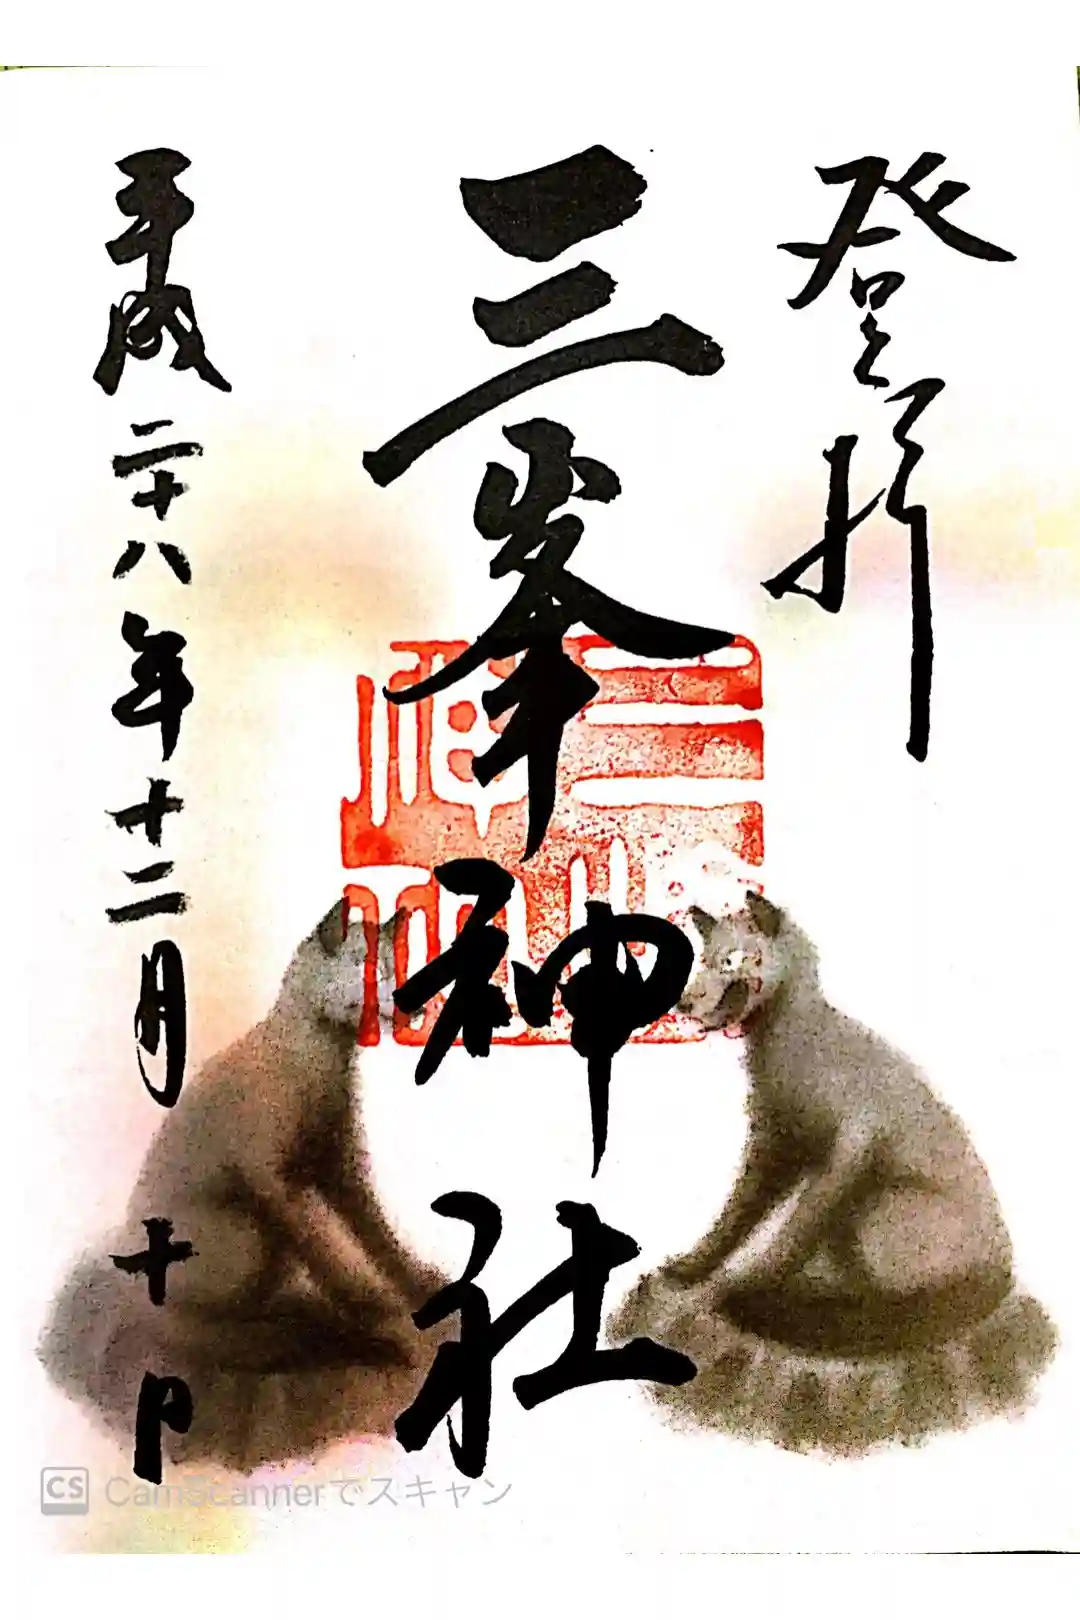 登拝
三峯神社
平成二十八年十二月十日
CS CamScannerでスキャン